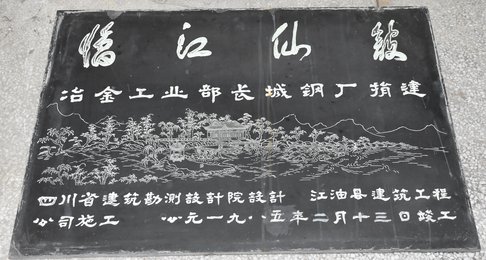 江仙
冶金工业部长城鋼厂捐建
四川省建筑勘测設計院設計 江油县建筑工程
公司施工 公元一九八五年二月十三日竣工